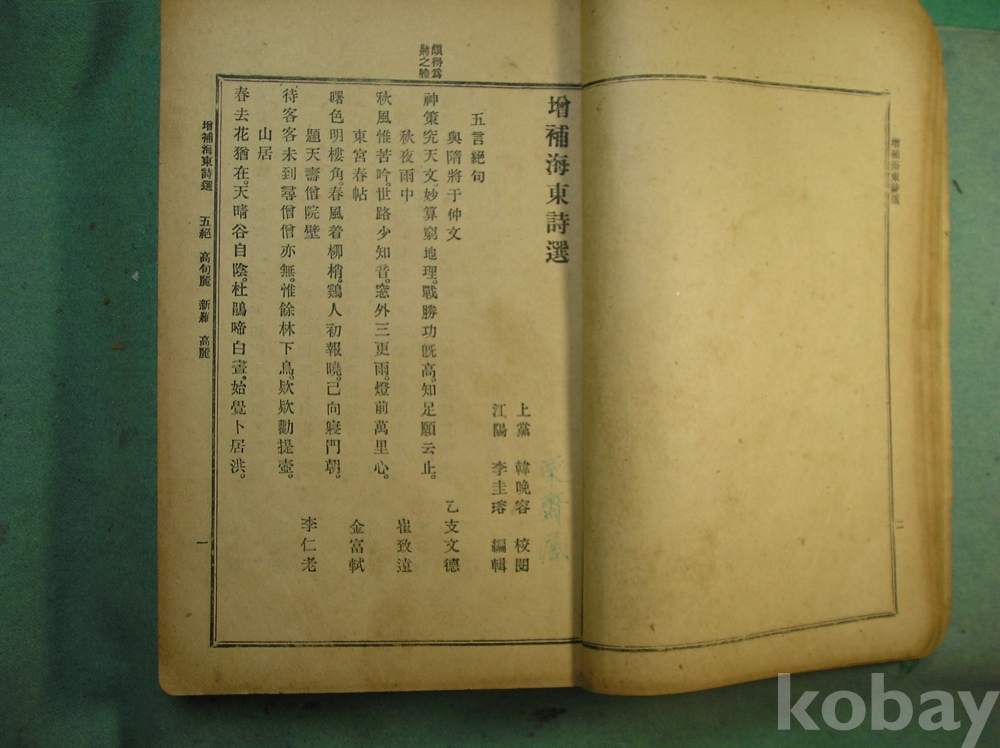 增補海東詩選
增補海東詩選
上黨 韓晩容 校閱
江陽 李圭瑢 編輯
五言絕句
與隋將于仲文
乙支文德
神策究天文。妙算窮地理。戰勝功旣高。知足願云止。
秋夜雨中
崔致遠
秋風惟苦吟。世路少知音。窓外三更雨。燈前萬里心。
東宮春帖
金富軾
曙色明樓角。春風着柳梢。鷄人初報曉。已向寢門朝。
題天壽僧院壁
李仁老
待客客未到尋僧僧亦無。惟餘林下鳥。欵欵勸提壺。
山居
春去花猶在。天晴谷自陰。杜鵑啼白晝。始覺卜居
增補海東詩選 五絕 高句麗 新羅 高麗
一
kobay